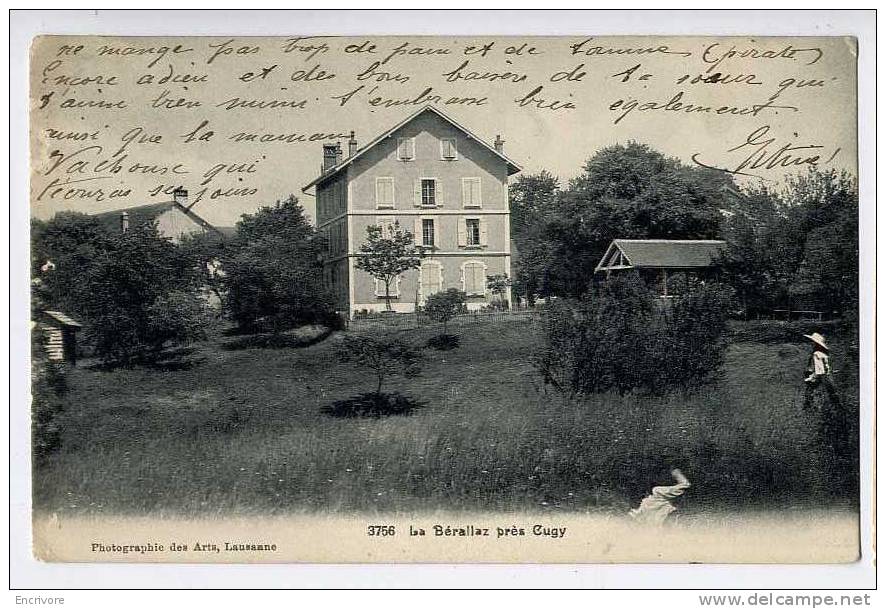 ne mange pas trop de pain et de tomme (pirate)
Encore adieu et des bons baisers de ta soeur qui
t'aime bien mimi t'embrasse bien également
ainsi que la maman
Vachouse qui
t'écuras sa jours
Titine!
3756 La Bérallaz près Cugy
Photographie des Arts, Lausanne
Encrivore
www.delcampe.net